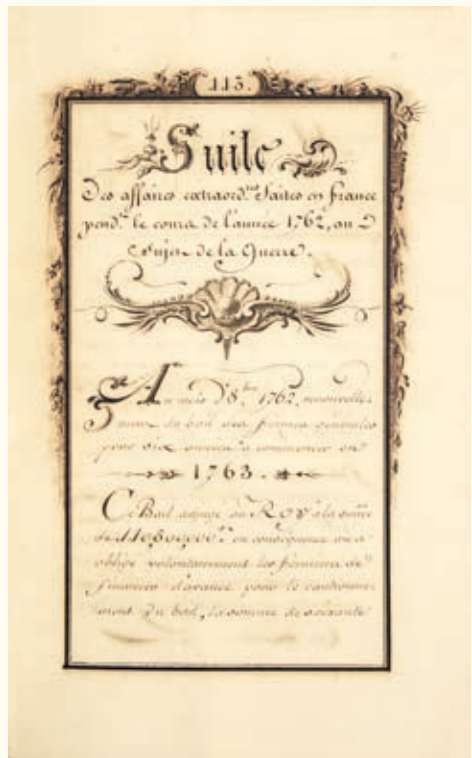 113.
Suite
Des affaires extraord.res faites en france
pend.t le cours de l'année 1762, au
Sujet de la Guerre.
Au mois d'8.bre 1762. renouvelle-
ment du bail des fermes generales
pour six années a commencer en
1763.
Ce Bail adjugé au ROY a la somme
de en consequence on a
obligé volontairement les fermiers de
financer d'avance pour le cautionne-
ment du bail, la somme de soixante